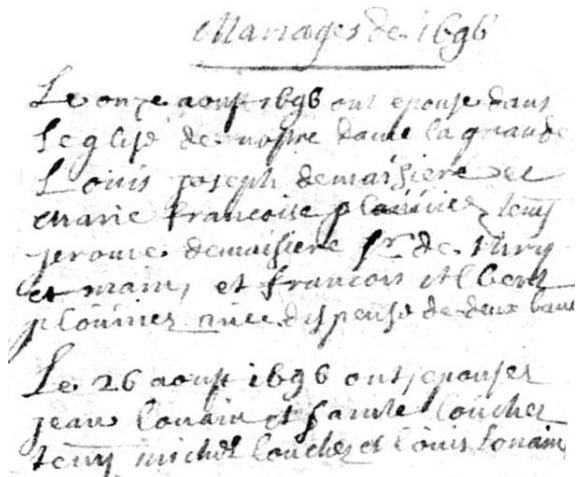 Mariages de 1696
Le onze aoust 1696 ont epousé dans
leglise de nostre dame la grande
Louis joseph demaisiere et
Marie francoise plouvier tem
jerome demaisiere sr de
et main, et francois Albert
plouvier avec dispense de deux bans
Le 26 aoust 1696 ont epouser
jean lonain et loucher
tem michel loucher et louis lonain